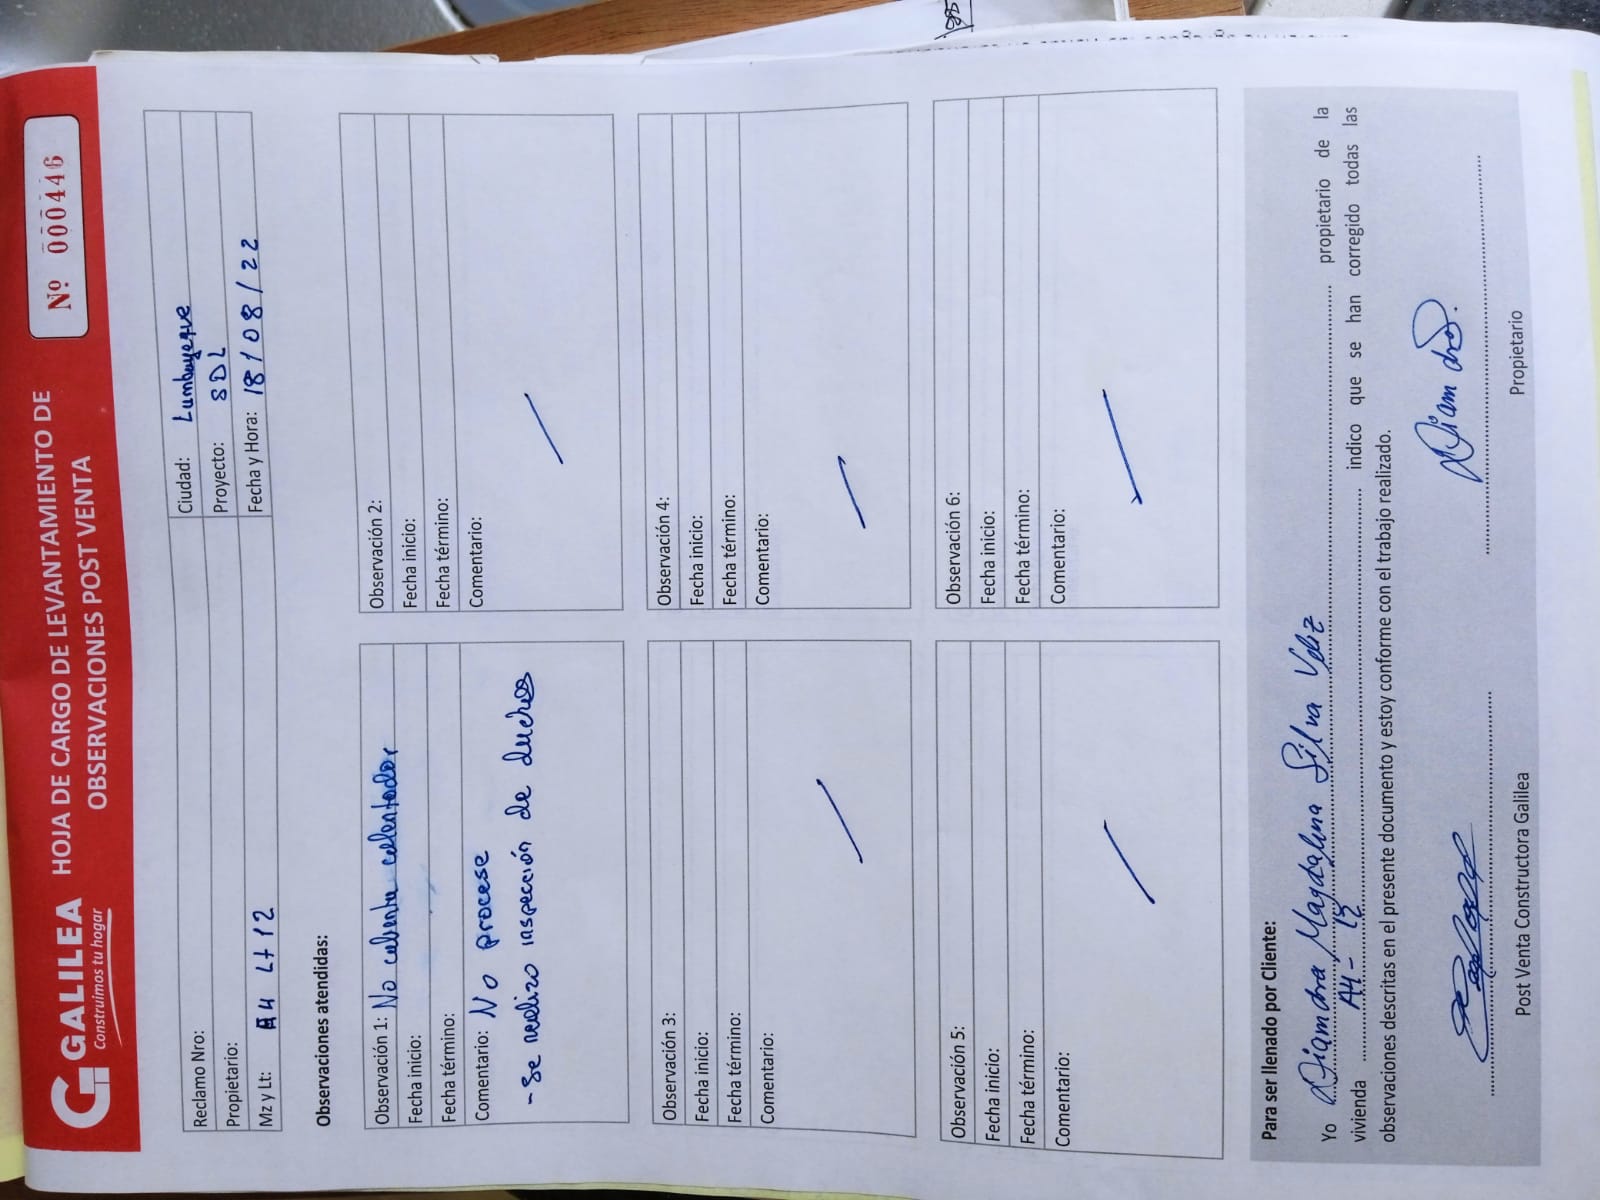 GALILEA
Construimos tu hogar
HOJA DE CARGO DE LEVANTAMIENTO DE
OBSERVACIONES POST VENTA
Nº 000446
Reclamo Nro:
Ciudad: Lambayeque
Propietario:
Proyecto: SDL
Mz y Lt: A4 Lt 12
Fecha y Hora: 18/08/22
Observaciones atendidas:
Observación 1: No calienta calentador
Fecha inicio:
Fecha término:
Comentario: No procese
- Se realizo inspección de duchas
Observación 2:
Fecha inicio:
Fecha término:
Comentario:
Observación 3:
Fecha inicio:
Fecha término:
Comentario:
Observación 4:
Fecha inicio:
Fecha término:
Comentario:
Observación 5:
Fecha inicio:
Fecha término:
Comentario:
Observación 6:
Fecha inicio:
Fecha término:
Comentario:
Para ser llenado por Cliente:
Yo Diamdra Magdalena Silva Veliz propietario de la
vivienda A4 - 12 indico que se han corregido todas las
observaciones descritas en el presente documento y estoy conforme con el trabajo realizado.
Post Venta Constructora Galilea
Propietario